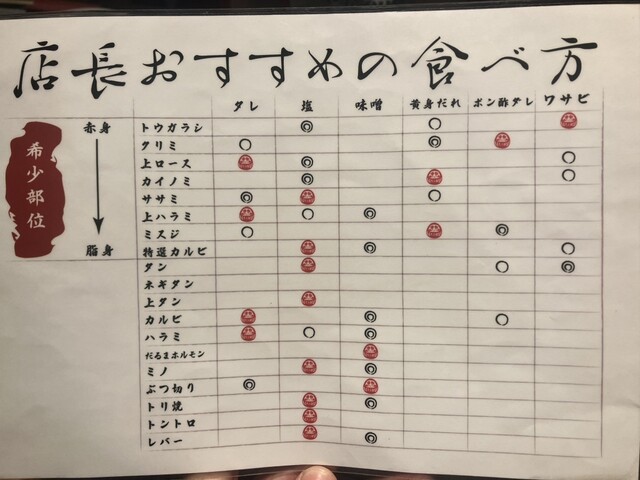 店長おすすめの食べ方
タレ 塩 味噌 黄身だれ ポン酢ダレ ワサビ
希少部位
赤身
脂身
トウガラシ ◎ ○
クリミ ○ ◎
上ロース ◎ ○
カイノミ ◎ ○
ササミ ◎ ○
上ハラミ ○ ◎
ミスジ ○ ◎
特選カルビ ◎ ○
タン ○ ◎
ネギタン
上タン
カルビ ◎ ○
ハラミ ○ ◎
だるまホルモン
ミノ ◎
ぶつ切り ◎
トリ焼 ◎
トントロ
レバー ◎